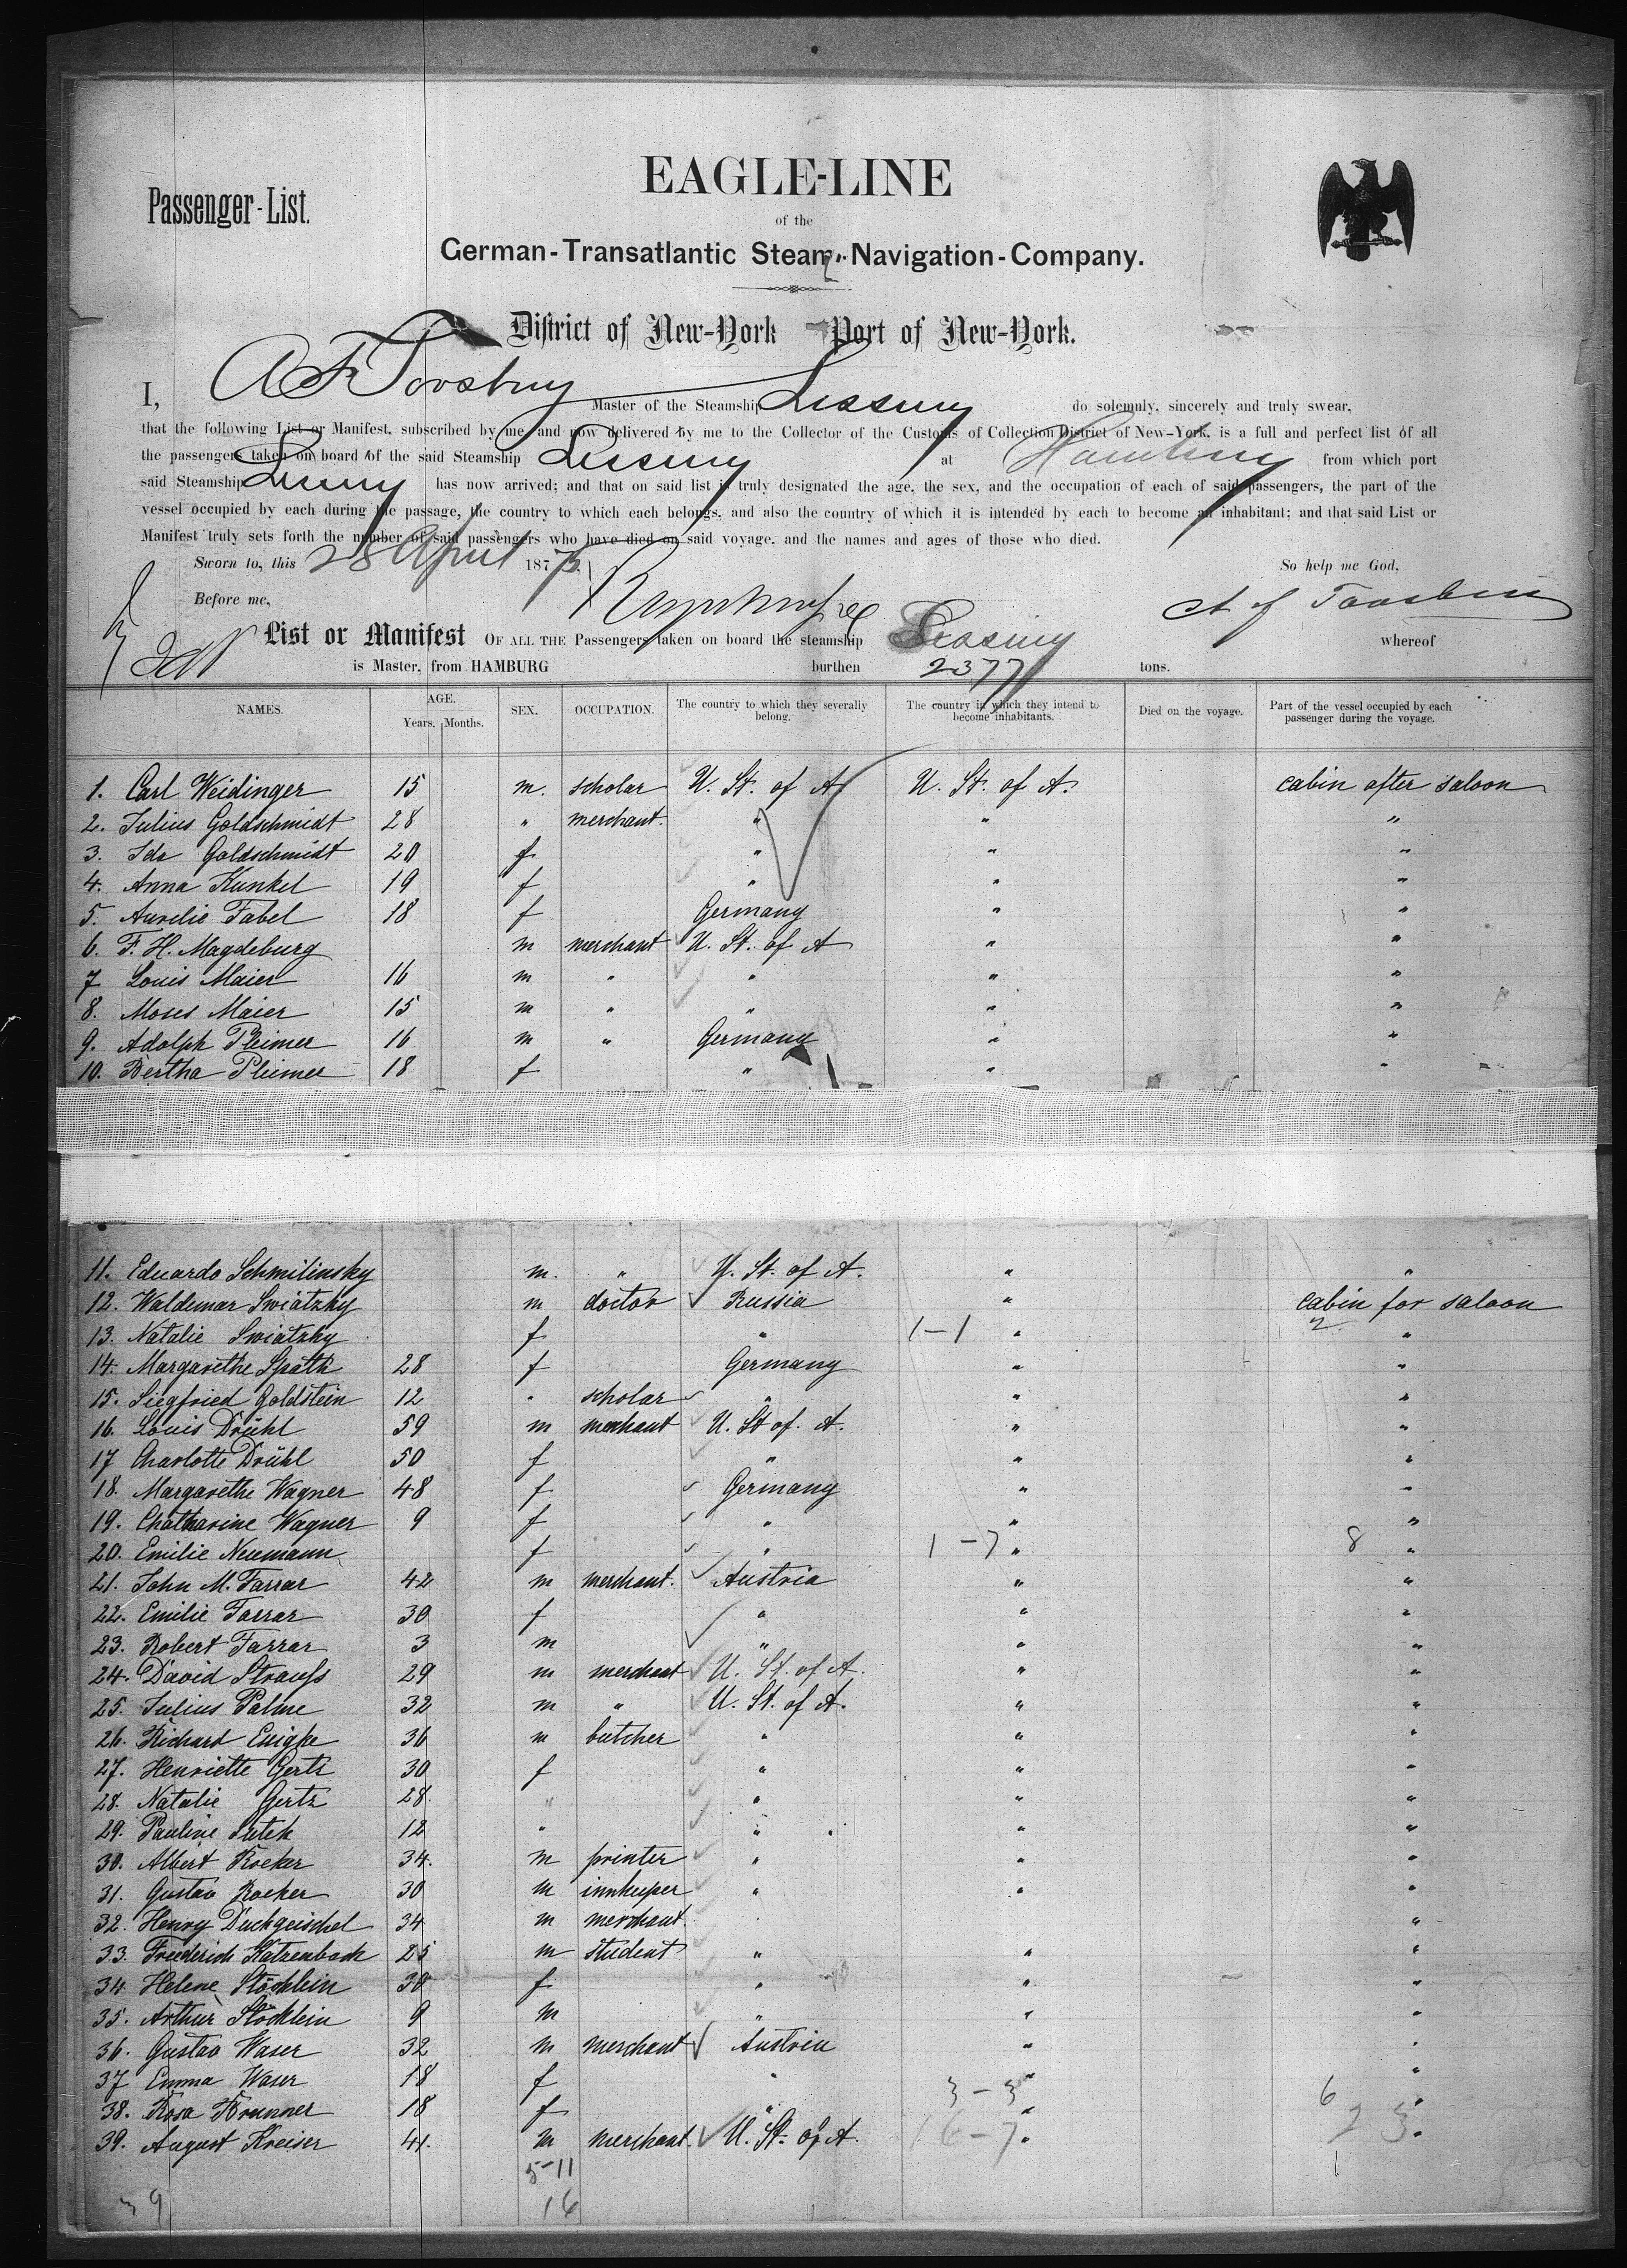 EAGLE-LINE
Passenger-List.
of the
German-Transatlantic Steam-Navigation-Company.
District of New-York Port of New-York.
I, Master of the Steamship Lessing do solemnly, sincerely and truly swear,
that the following List or Manifest, subscribed by me and now delivered by me to the Collector of the Customs of Collection District of New-York, is a full and perfect list of all
the passengers taken on board of the said Steamship Lessing at Hamburg from which port
said Steamship Lessing has now arrived; and that on said list is truly designated the age, the sex, and the occupation of each of said passengers, the part of the
vessel occupied by each during the passage, the country to which each belongs, and also the country of which it is intended by each to become an inhabitant; and that said List or
Manifest truly sets forth the number of said passengers who have died on said voyage, and the names and ages of those who died.
Sworn to, this 28 April 1875 So help me God,
Before me,
List or Manifest OF ALL THE Passengers taken on board the steamship Lessing whereof
is Master, from HAMBURG burthen 2377 tons.
NAMES. AGE. Years. Months. SEX. OCCUPATION. The country to which they severally belong. The country in which they intend to become inhabitants. Died on the voyage. Part of the vessel occupied by each passenger during the voyage.
1. Carl Weidinger 15 m. scholar U. St. of A. U. St. of A. cabin after saloon
2. Julius Goldschmidt 28 " merchant. " " "
3. Ida Goldschmidt 20 f " " "
4. Anna Kunkel 19 f " " "
5. Aurelie Fabel 18 f Germany " "
6. F. H. Magdeburg m merchant U. St. of A " "
7 Louis Maier 16 m " " " "
8. Moses Maier 15 m " " " "
9. Adolph Pleimer 16 m " Germany " "
10. Bertha Pleimer 18 f " " "
11. Eduardo Schmilinsky m. " U. St. of A. " "
12. Waldemar Swiatzky m doctor Russia " cabin for saloon
13. Natalie Swiatzky f " 1-1 " 2 "
14. Margarethe Späth 28 f Germany " "
15. Siegfried Goldstein 12 " scholar " " "
16. Louis Drühl 59 m merchant U. St of. A. " "
17 Charlotte Drühl 50 f " " "
18. Margarethe Wagner 48 f Germany " "
19. Chatharine Wagner 9 f " " "
20. Emilie Neumann f " 1-7 " 8 "
21. John M. Farrar 42 m merchant. Austria " "
22. Emilie Farrar 30 f " " "
23. Robert Farrar 3 m " " "
24. David Strauss 29 m merchant U. St. of A. " "
25. Julius Palme 32 m " U. St. of A. " "
26. Richard 36 m butcher " " "
27. Henriette Gertz 30 f " " "
28. Natalie Gertz 28. " " " "
29. Pauline 12 " " " "
30. Albert Rocker 34. m printer " " "
31. Gustav Rocker 30 m innkeeper " " "
32. Henry Duckgeischel 34 m merchant "
33. Friederich Katzenbach 25 m student " " "
34. Helene Stöcklein 30 f " " "
35. Arthur Stöcklein 9 m " " "
36. Gustav Waser 32 m merchant Austria " "
37 Emma Waser 18 f " 3-3 " "
38. Rosa Brunner 18 f " " 6 "
39. August Kreiser 41. m merchant. U. St. of A. 6-7 " 23 "
5-11
39 16